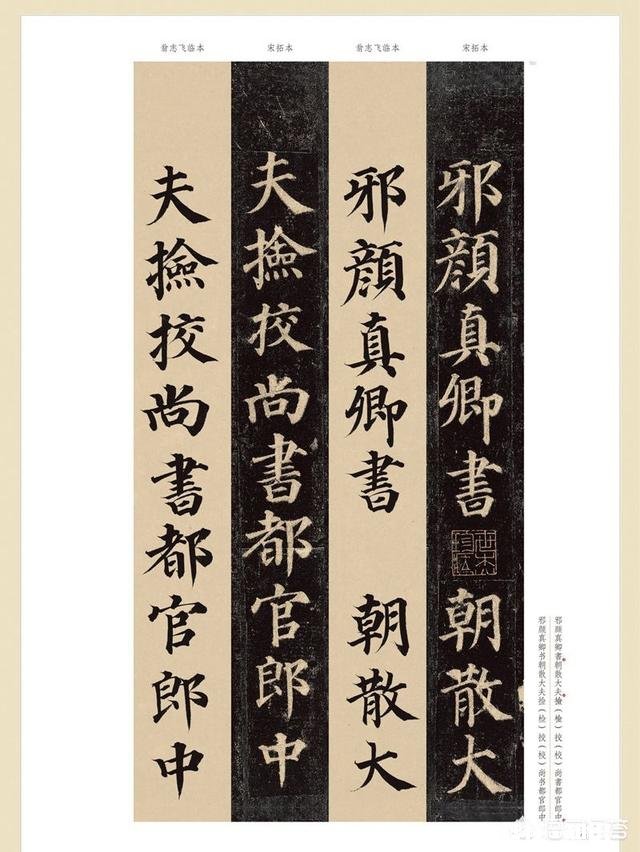 翁志飞临本
宋拓本
翁志飞临本
宋拓本
邪顔真卿書
朝散大
邪顔真卿書
朝散大
夫撿挍尚書都官郎中
夫撿挍尚書都官郎中
邪顔真卿書朝散大夫撿（檢）挍（校）尚書都官郎中
邪颜真卿书朝散大夫捡（检）挍（校）尚书都官郎中